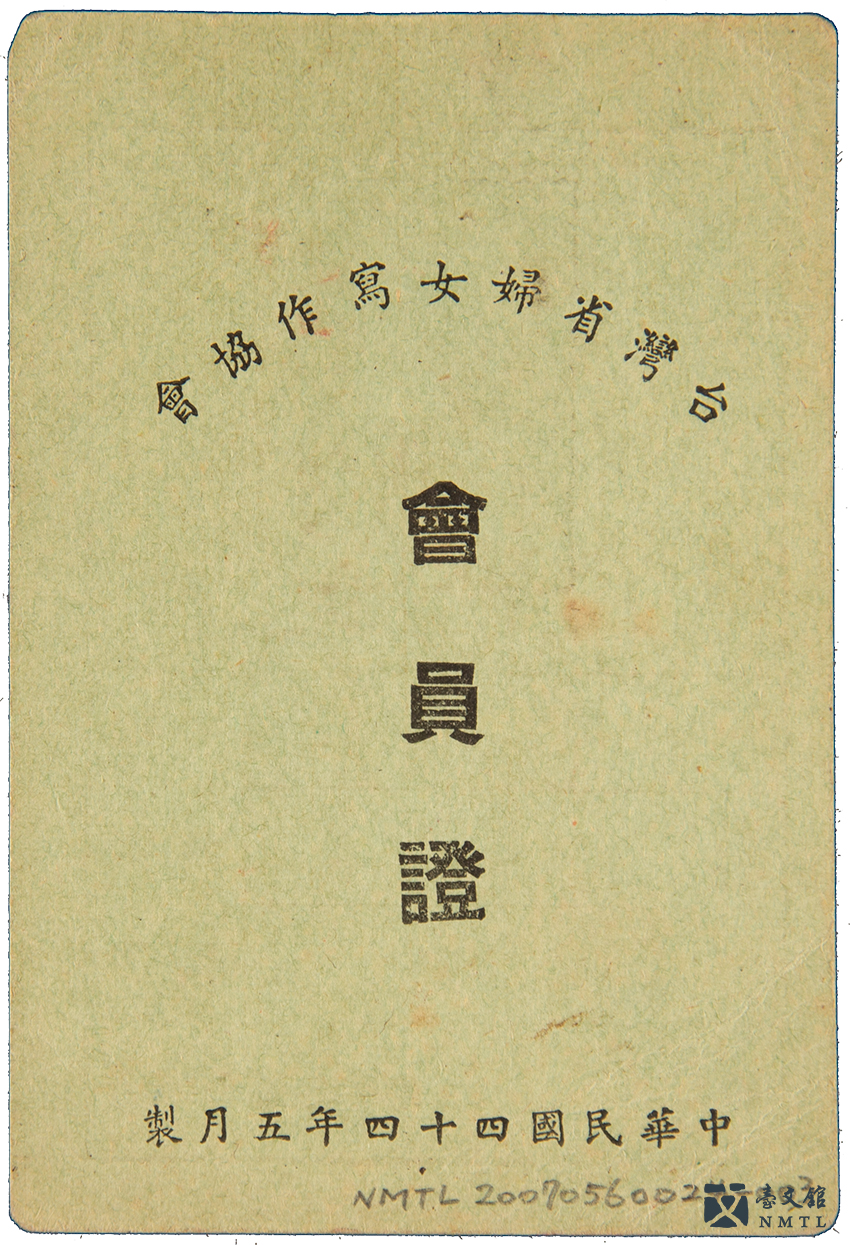 台灣省婦女寫作協會
會員證
中華民國四十四年五月製
NMTL 20070560024-003
臺文館
NMTL